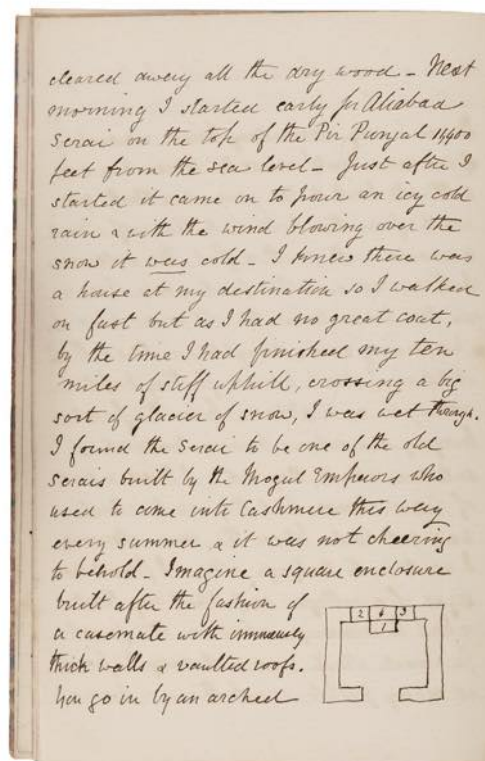 cleared away all the dry wood – Next
morning I started early for Aliabad
Serai on the top of the Pir Punjal 11,400
feet from the sea level – Just after I
started it came on to pour an icy cold
rain & with the wind blowing over the
snow it was cold – I knew there was
a house at my destination so I walked
on fast but as I had no great coat,
by the time I had finished my ten
miles of stiff uphill, crossing a big
sort of glacier of snow, I was wet through.
I found the Serai to be one of the old
Serais built by the Mogul Emperors who
used to come into Cashmere this way
every summer & it was not cheering
to behold – Imagine a square enclosure
built after the fashion of
a casemate with immensely
thick walls & vaulted roofs.
You go in by an arched
2 4 3
1